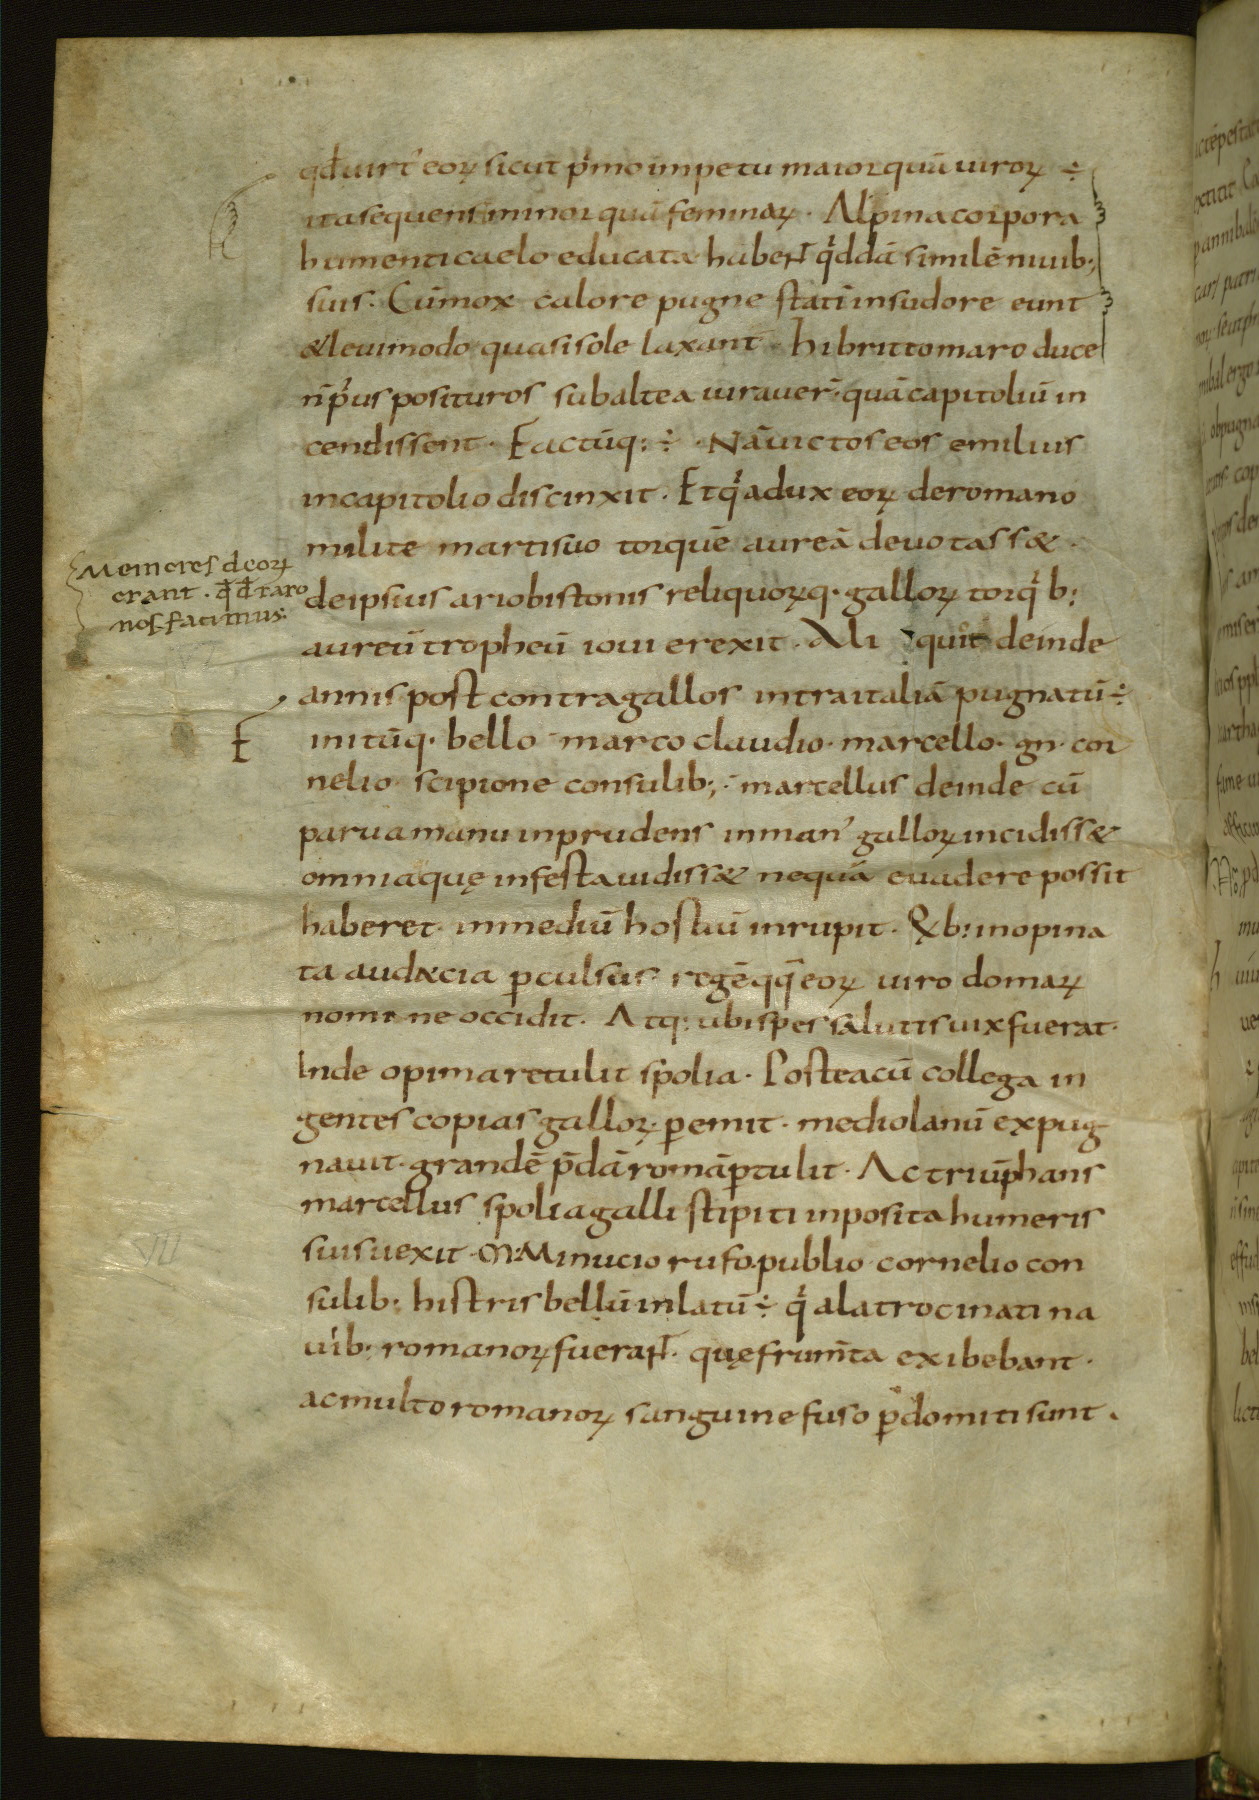 qđ uirt' eoꝝ sicut p'mo impetu maior quā uiroꝝ ÷
ita sequens minor quā feminaꝝ · Alpina corpora
humenti caelo educata haben̄t q'ddā simile niuib;
suis · Cū mox calore pugne statī in sudore eunt
& leui modo quasi sole laxant · hi brittomaro duce
n̄ p'us posituros sub altea uirauer̄ · quā capitoliū in
cendissent · Factūq; ÷ · Nā uictos eos emilius
in capitolio discinxit · Et q'a dux eoꝝ de romano
milite marti suo torquē aureā deuotass& ·
de ipsius ariobistonis reliquoꝝq · galloꝝ torq'b;
Memores deoꝝ
erant · qđ raro
nos facimus
aureū tropheū ioui erexit · Ali quit deinde
annis post contra gallos intra italiā pugnatū ÷
F initūq · bello marco claudio · marcello · gn · cor
nelio scipione consulib; · marcellus deinde cū
parua manu inprudens in man' galloꝝ incidiss&
omniaquę infesta uidiss& ne quā euadere possit
haberet · in mediū hostiū inrupit · Q̨b; inopina
ta audacia ꝑculsus regēqq̄ eoꝝ uirodomaꝝ
nomine occidit · Atq; ubi spes salutis uix fuerat ·
Inde opima retulit spolia · Postea cū collega in
gentes copias galloꝝ ꝑemit · mediolanū expug
nauit · grandē p̄dā romā ptulit · Ac triūphans
marcellus spolia galli stipiti inposita humeris
suis uexit · M · Minucio rufo publio cornelio con
sulib; histris bellū inlatū ÷ q'a latrocinati na
uib; romanoꝝ fueran̄t · quę frum̄ta exibebant ·
ac multo romanoꝝ sanguine fuso ꝑdomiti sunt ·
VI
VII